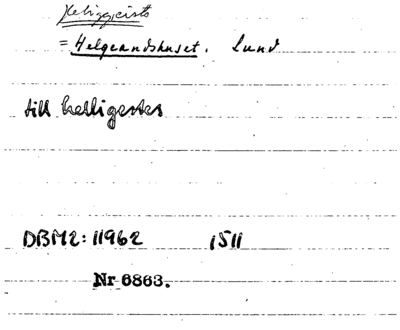 Heliggeists
= Helgeandshuset. Lund
till helligestes
DBM2: 11962 1511
Nr 6863.